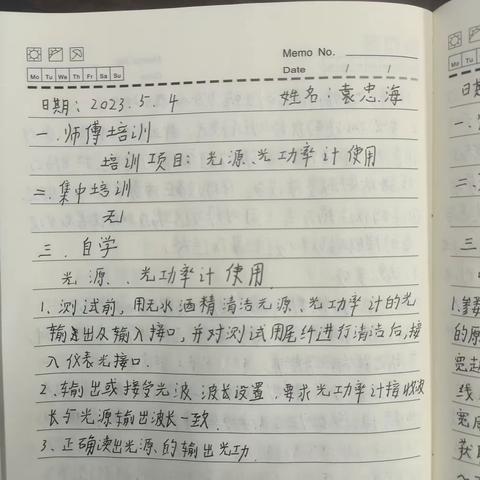 Memo No.
Mo Tu We Th Fr Sa Su
Date / /
日期：2023.5.4 姓名：袁忠海
一.师傅培训
培训项目：光源、光功率计使用
二.集中培训
无
三.自学
光源、光功率计使用
1、测试前，用无水酒精清洁光源、光功率计的光
输出及输入接口，并对测试用尾纤进行清洁后，接
入仪表光接口.
2、输出或接受光波 波长设置，要求光功率计接收波
长与光源输出波长一致.
3、正确读出光源的输出光功.